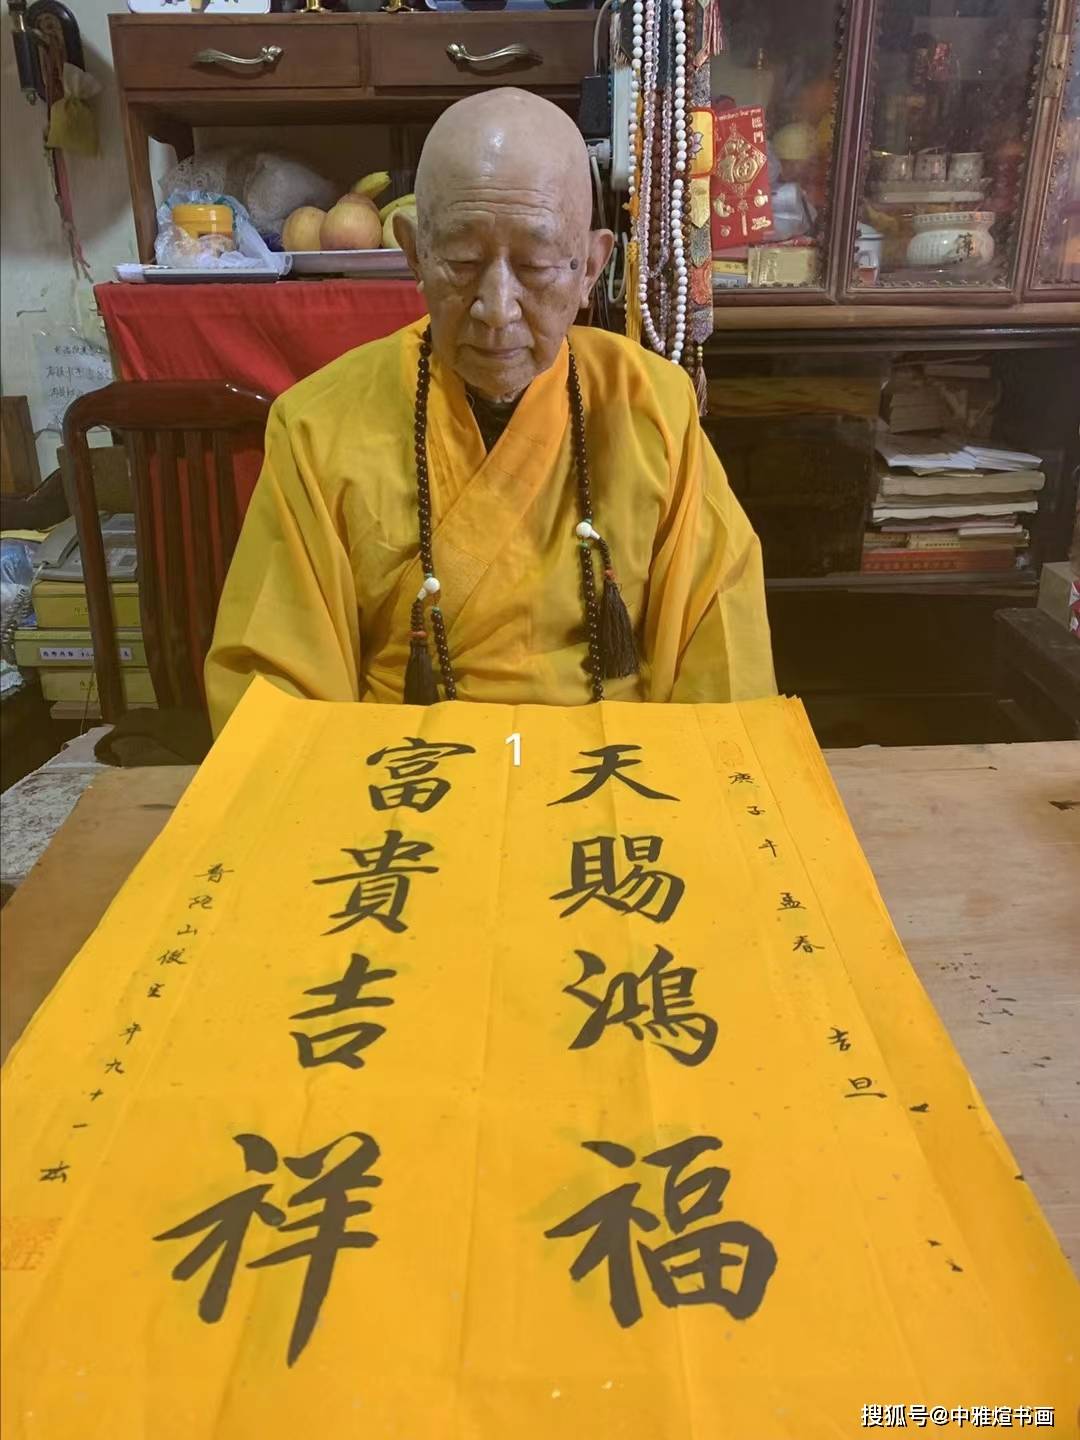 庚子年孟春 吉旦
天賜鴻福
富貴吉祥
普陀山僧
年九十一
1
搜狐号@中雅煊书画